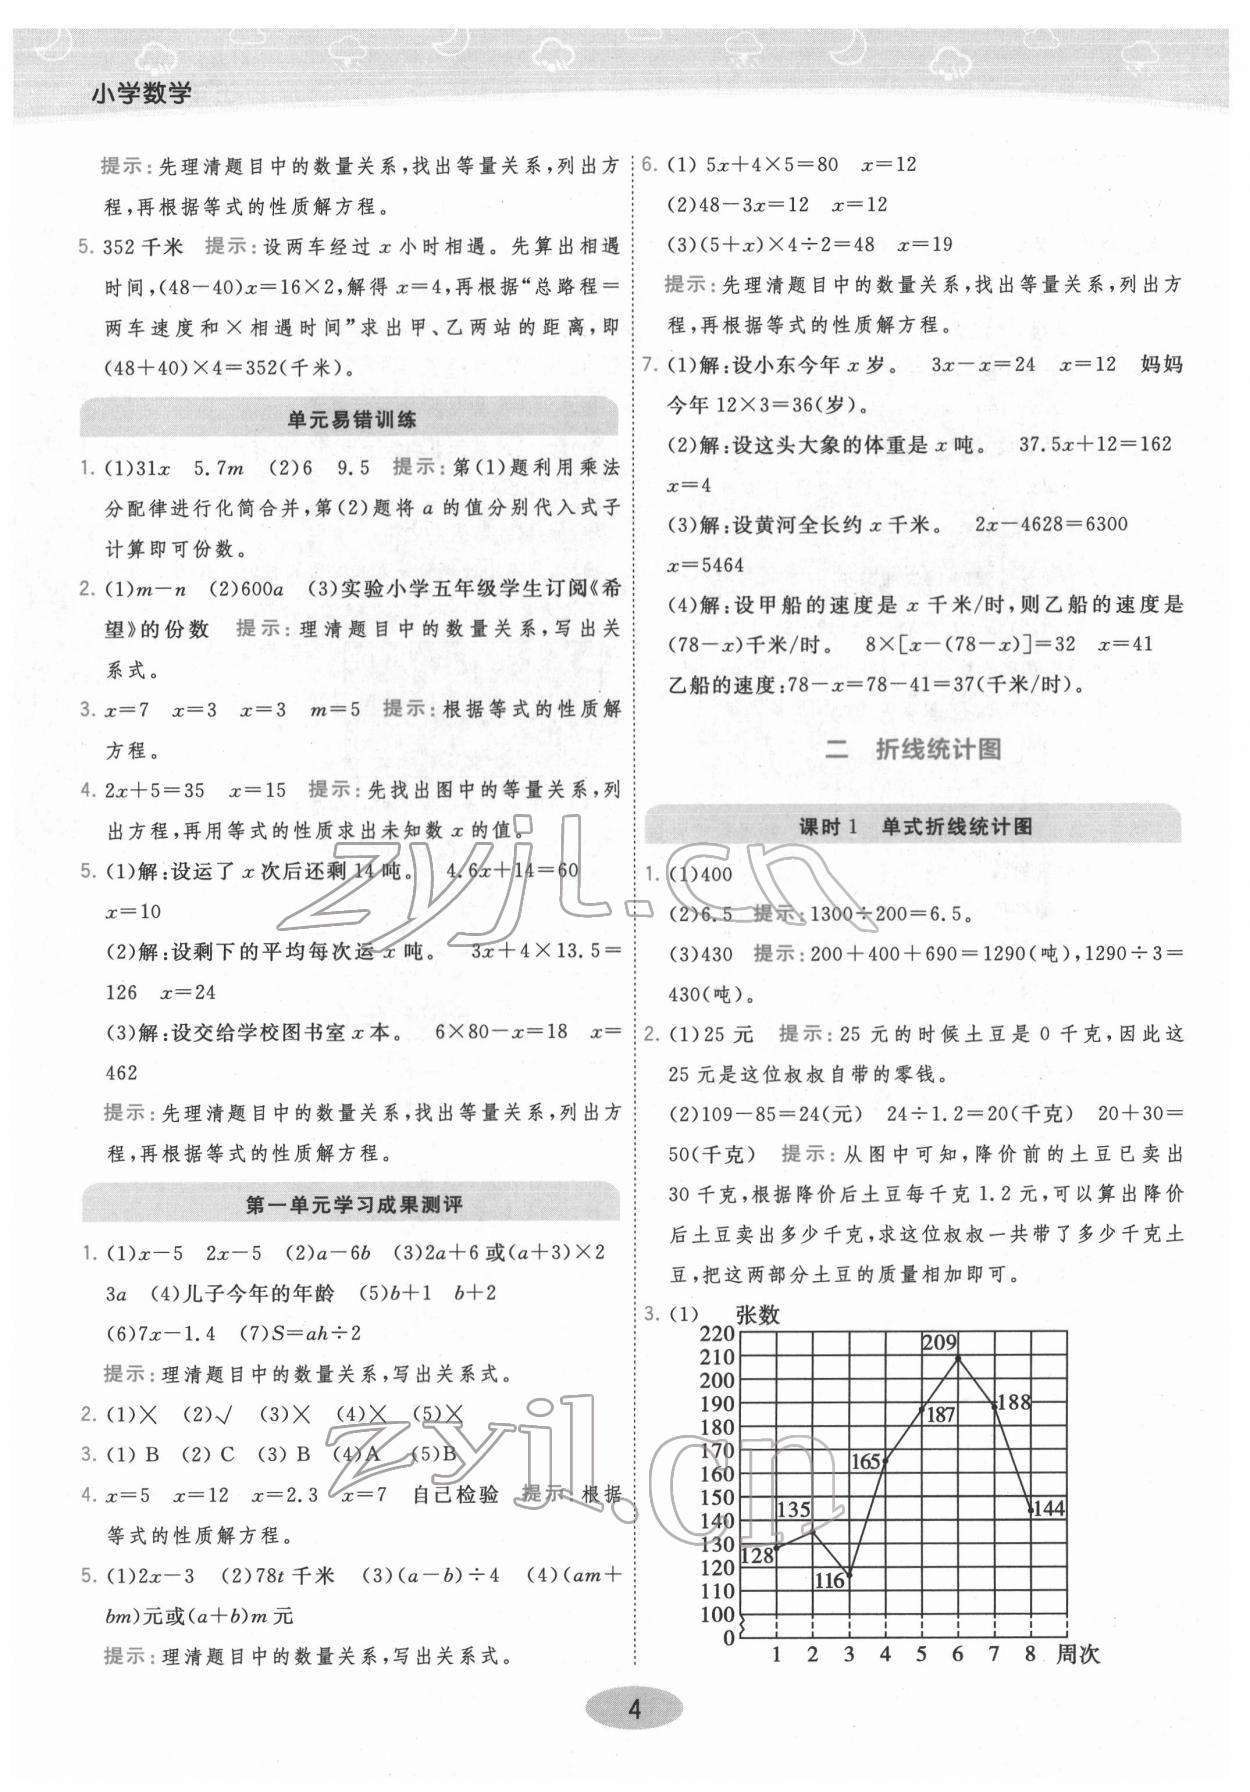 小学数学
提示:先理清题目中的数量关系,找出等量关系,列出方
程,再根据等式的性质解方程。
5. 352千米 提示:设两车经过x小时相遇。先算出相遇
时间,(48-40)x=16×2,解得x=4,再根据“总路程=
两车速度和×相遇时间”求出甲、乙两站的距离,即
(48+40)×4=352(千米)。
单元易错训练
1. (1)31x 5.7m (2)6 9.5 提示:第(1)题利用乘法
分配律进行化简合并,第(2)题将a的值分别代入式子
计算即可份数。
2. (1)m-n (2)600a (3)实验小学五年级学生订阅《希
望》的份数 提示:理清题目中的数量关系,写出关
系式。
3. x=7 x=3 x=3 m=5 提示:根据等式的性质解
方程。
4. 2x+5=35 x=15 提示:先找出图中的等量关系,列
出方程,再用等式的性质求出未知数x的值。
5. (1)解:设运了x次后还剩14吨。 4.6x+14=60
x=10
(2)解:设剩下的平均每次运x吨。 3x+4×13.5=
126 x=24
(3)解:设交给学校图书室x本。 6×80-x=18 x=
462
提示:先理清题目中的数量关系,找出等量关系,列出方
程,再根据等式的性质解方程。
第一单元学习成果测评
1. (1)x-5 2x-5 (2)a-6b (3)2a+6或(a+3)×2
3a (4)儿子今年的年龄 (5)b+1 b+2
(6)7x-1.4 (7)S=ah÷2
提示:理清题目中的数量关系,写出关系式。
2. (1)× (2)√ (3)× (4)× (5)×
3. (1) B (2) C (3) B (4)A (5)B
4. x=5 x=12 x=2.3 x=7 自己检验 提示:根据
等式的性质解方程。
5. (1)2x-3 (2)78t千米 (3)(a-b)÷4 (4)(am+
bm)元或(a+b)m元
提示:理清题目中的数量关系,写出关系式。
6. (1) 5x+4×5=80 x=12
(2)48-3x=12 x=12
(3)(5+x)×4÷2=48 x=19
提示:先理清题目中的数量关系,找出等量关系,列出方
程,再根据等式的性质解方程。
7. (1)解:设小东今年x岁。 3x-x=24 x=12 妈妈
今年12×3=36(岁)。
(2)解:设这头大象的体重是x吨。 37.5x+12=162
x=4
(3)解:设黄河全长约x千米。 2x-4628=6300
x=5464
(4)解:设甲船的速度是x千米/时,则乙船的速度是
(78-x)千米/时。 8×[x-(78-x)]=32 x=41
乙船的速度:78-x=78-41=37(千米/时)。
二 折线统计图
课时1 单式折线统计图
1. (1)400
(2)6.5 提示:1300÷200=6.5。
(3)430 提示:200+400+690=1290(吨),1290÷3=
430(吨)。
2. (1)25元 提示:25元的时候土豆是0千克,因此这
25元是这位叔叔自带的零钱。
(2)109-85=24(元) 24÷1.2=20(千克) 20+30=
50(千克) 提示:从图中可知,降价前的土豆已卖出
30千克,根据降价后土豆每千克1.2元,可以算出降价
后土豆卖出多少千克,求这位叔叔一共带了多少千克土
豆,把这两部分土豆的质量相加即可。
3. (1) 张数
220
210
200
190
180
170
160
150
140
130
120
110
100
0
128
135
116
165
187
209
188
144
1 2 3 4 5 6 7 8 周次
zyjl.cn
zyjl.cn
4